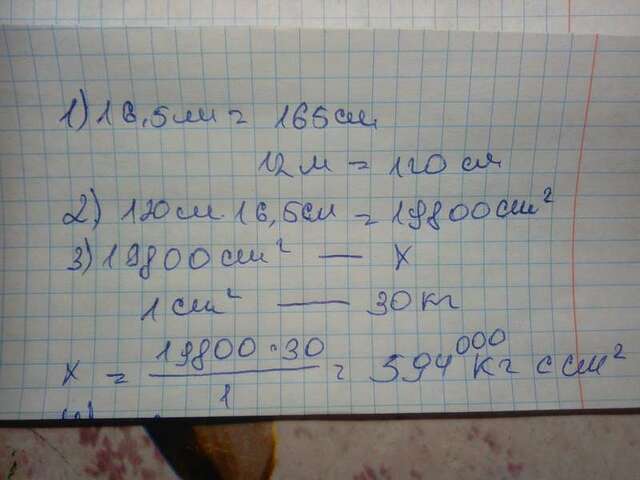 1) 16,5см = 165см
12м = 120 см
2) 120см · 16,5см = 19800см²
3) 19800см² — x
1 см² — 30кг
x = 19800·30 / 1 = 594 000 кг с см²